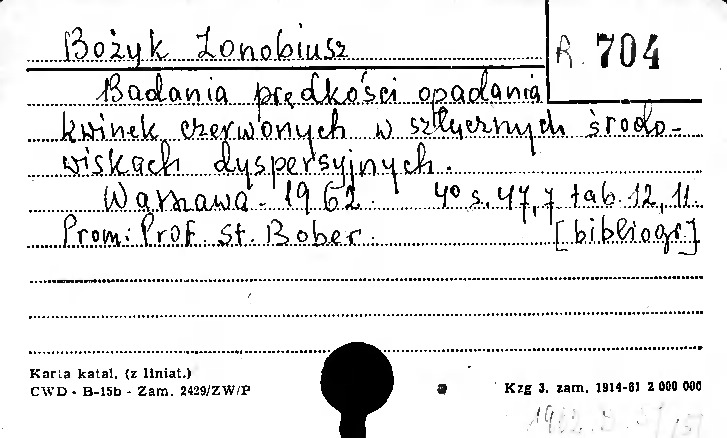 Bożyk Zonobiusz
R. 704
Badania prędkości opadania
kwinek czerwonych w sztucznych środo-
wiskach dyspersyjnych.
Warszawa. 1962. 4° s. 47, 7 tab. 12, 11.
Prom: Prof. St. Bober. [bibliogr.]
Karta katal. (z liniat.)
CWD - B-15b - Zam. 2429/ZW/P
Kzg 3. zam. 1914-61 2 000 000